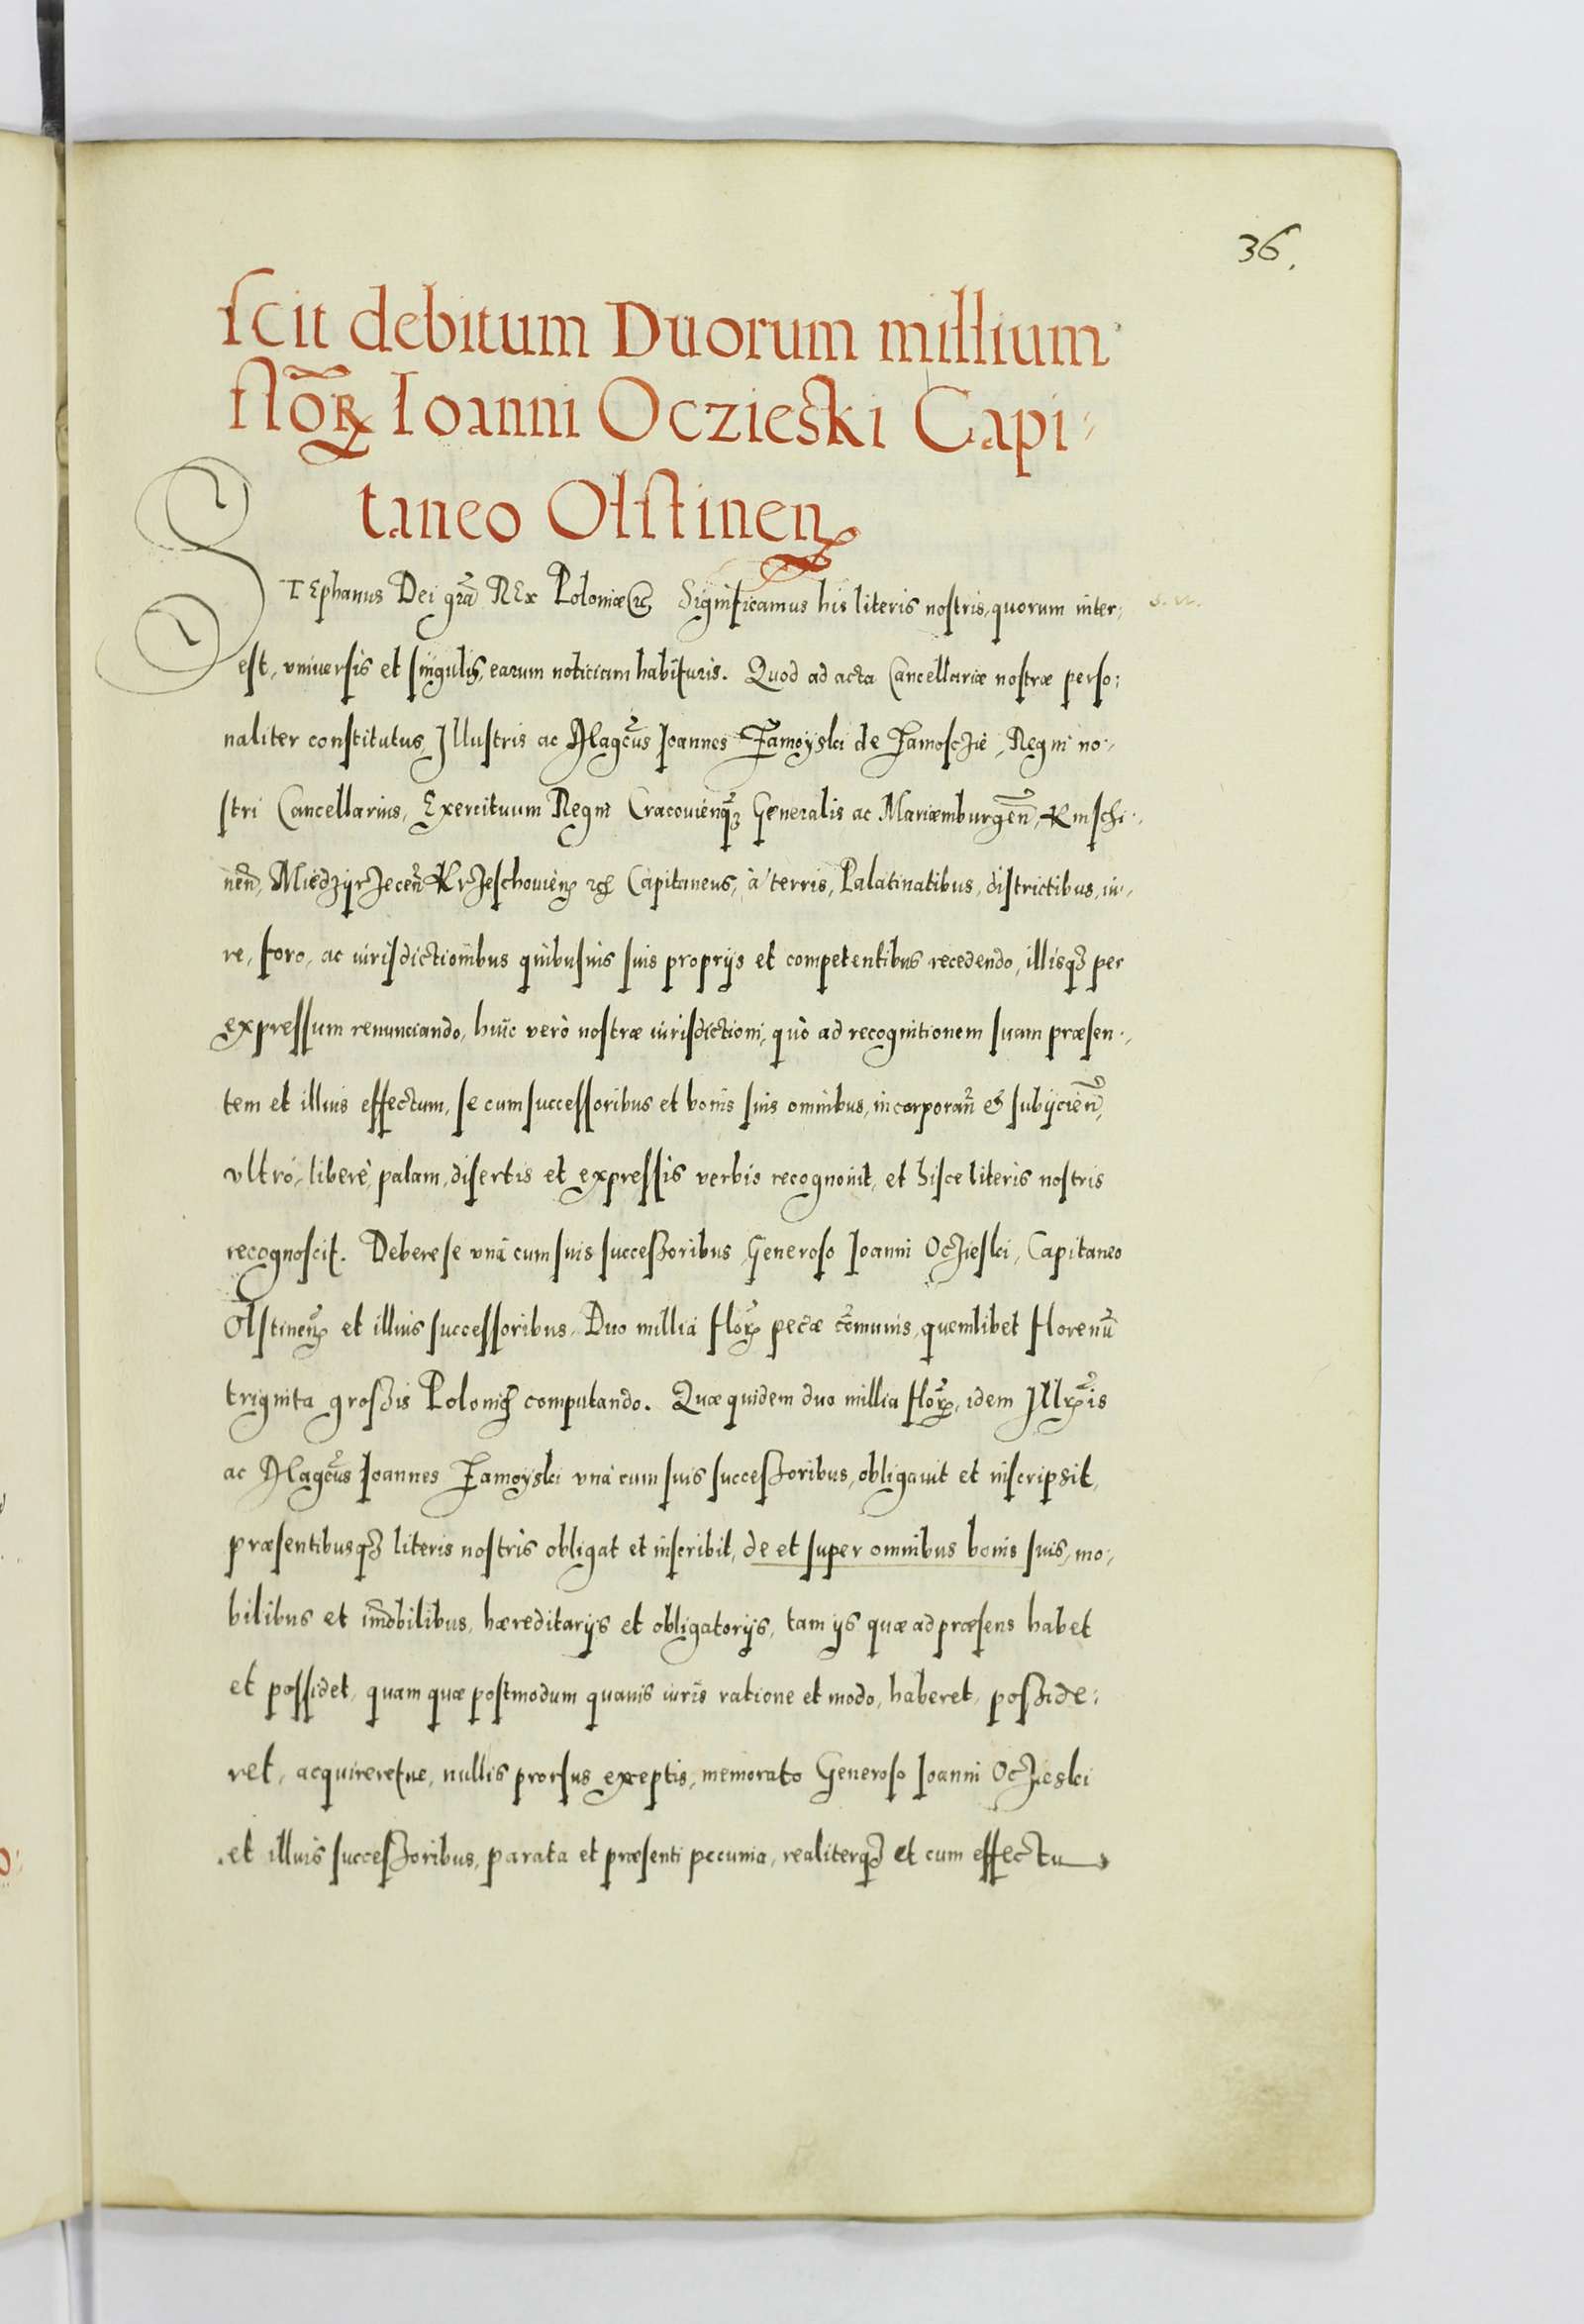 36.
scit debitum Duorum millium
flor̃ Ioanni Oczieski Capi-
taneo Olstinen̄
STEphanus Dei gr̃a REx Poloniæ etc. Significamus his literis nostris, quorum inter-
est, vniuersis et singulis, earum noticiam habituris. Quod ad acta Cancellariæ nostræ perso-
naliter constitutus, Illustris ac Magcus Ioannes Zamoyski de Zamosczie, Regni no-
stri Cancellarius, Exercituum Regni Cracouienq̃ Generalis ac Mariæmburgen̄, Knischi-
nen̄, Miedzyrzecen̄ Krzeschouien̄ etc. Capitaneus, à terris, Palatinatibus, districtibus, iu-
re, foro, ac iurisdictionibus quibusuis suis proprijs et competentibus recedendo, illisq3 per
expressum renunciando, huic verò nostræ iurisdictioni, quò ad recognitionem suam præsen-
tem et illius effectum, se cum successoribus et bonis suis omnibus, incorporan̄ et subijcien̄,
vltrò, liberè, palam, disertis et expressis verbis recognouit, et hisce literis nostris
recognoscit. Debere se vnà cum suis successoribus Generoso Ioanni Oczieski, Capitaneo
Olstinen̄ et illius successoribus. Duo millia flor̃ pecũæ cõmunis, quemlibet florenũ
triginta grossis Polonic̃ computando. Quæ quidem duo millia flor̃, idem Illr̃is
ac Magcus Ioannes Zamoyski vnà cum suis successoribus, obligauit et inscripsit,
præsentibusq3 literis nostris obligat et inscribit, de et super omnibus bonis suis, mo-
bilibus et im̃obilibus, hæreditarijs et obligatorijs, tam ijs quæ ad præsens habet
et possidet, quam quæ postmodum quauis iuris ratione et modo, haberet, posside-
ret, acquireretue, nullis prorsus exceptis, memorato Generoso Ioanni Oczieski
et illius successoribus, parata et præsenti pecunia, realiterq3 et cum effectu